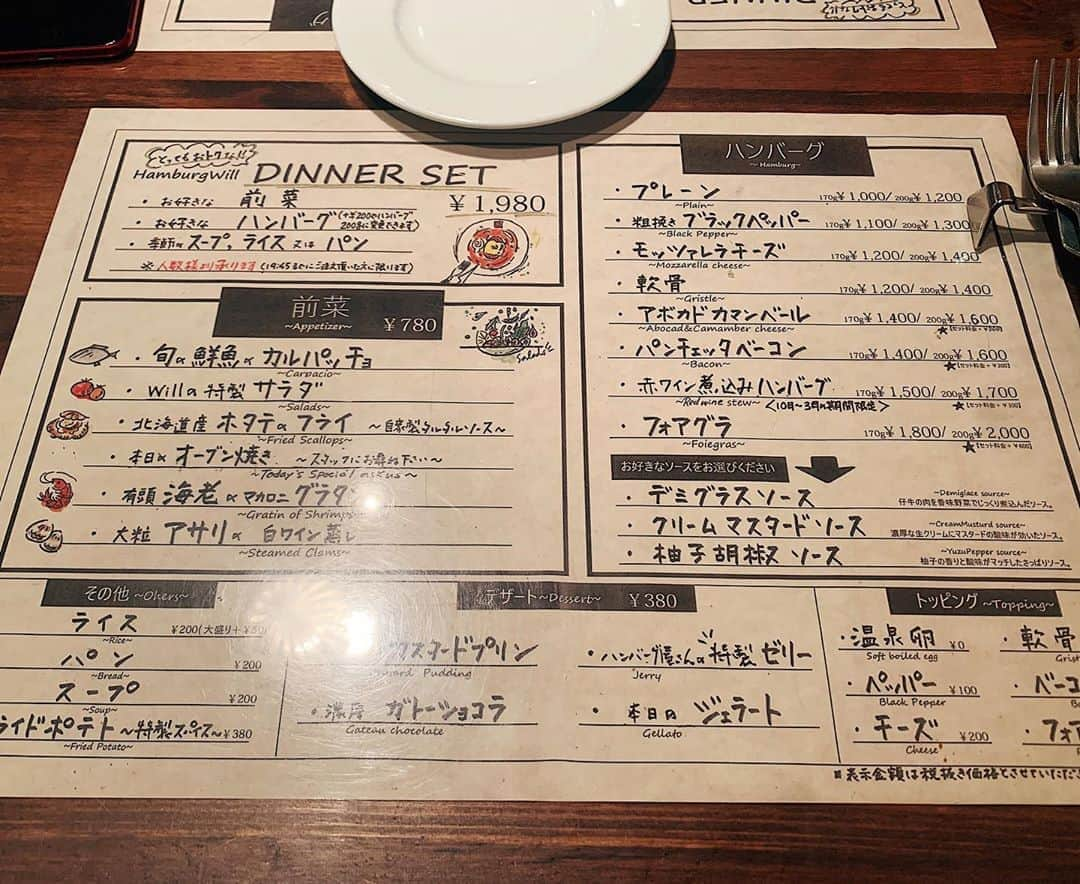 DINNER
とってもおトクな!!
HamburgWill DINNER SET
・お好きな 前菜 ¥1,980
・お好きな ハンバーグ
・季節の スープ, ライス 又は パン
※人数様より承ります (19:45までにご注文頂いた方に限ります)
前菜
~Appetizer~ ¥780
Salads
・旬の鮮魚の カルパッチョ
~Carpacio~
・Willの特製 サラダ
~Salads~
・北海道産 ホタテのフライ ~自家製タルタルソース~
~Fried Scallops~
・本日の オーブン焼き ~スタッフにお尋ね下さい~
~Today's Special
・有頭 海老のマカロニ グラタン
~Gratin of Shrimps~
・大粒 アサリの 白ワイン蒸し
~Steamed Clams~
ハンバーグ
~Hamburg~
・プレーン 170g¥1,000/200g¥1,200
~Plain~
・粗挽き ブラックペッパー 170g¥1,100/200g¥1,300
~Black Pepper~
・モッツァレラチーズ 170g¥1,200/200g¥1,400
~Mozzarella cheese~
・軟骨 170g¥1,200/200g¥1,400
~Gristle~
・アボカド カマンベール 170g¥1,400/200g¥1,600
~Abocad&Camamber cheese~
・パンチェッタベーコン 170g¥1,400/200g¥1,600
~Bacon~
・赤ワイン煮込みハンバーグ 170g¥1,500/200g¥1,700
~Red wine stew~ <10月~3月の期間限定>
・フォアグラ 170g¥1,800/200g¥2,000
~Foiegras~
お好きなソースをお選びください
・デミグラスソース ~Demiglace source~
仔牛の肉を香味野菜でじっくり煮込んだソース。
・クリームマスタードソース ~CreamMusturd source~
濃厚な生クリームにマスタードの酸味が効いたソース。
・柚子胡椒ソース ~YuzuPepper source~
柚子の香りと酸味がマッチしたさっぱりソース。
その他 ~Ohers~
ライス ¥200(大盛り+¥50
~Rice~
パン ¥200
~Bread~
スープ ¥200
~Soup~
ライドポテト ~特製スパイス~ ¥380
~Fried Potato~
デザート~Dessert~ ¥380
カスタードプリン
Pudding
・ハンバーグ屋さんの特製 ゼリー
Jerry
・濃厚 ガトーショコラ
Gateau chocolate
・本日の ジェラート
Gellato
トッピング ~Topping~
・温泉卵 ¥0
Soft boiled egg
・軟骨
Grist
・ペッパー ¥100
Black Pepper
・ベーコ
Ba
・チーズ ¥200
Cheese
・フォア
※表示金額は税抜き価格とさせていただき